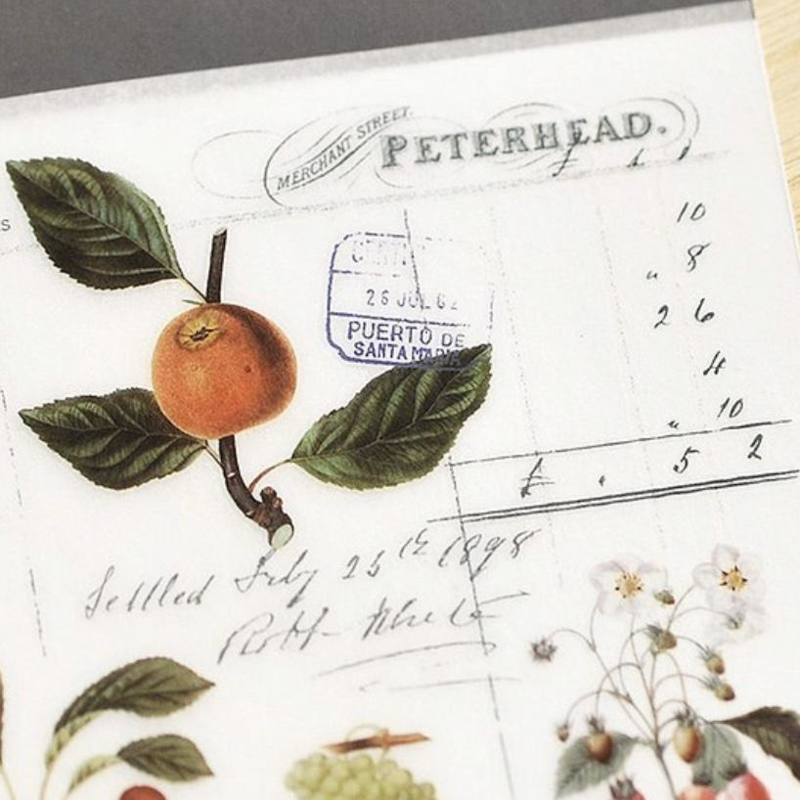 MERCHANT STREET.
PETERHEAD.
£
10
" 8
2 6
4
" 10
£ . 5 2
26 JUL 62
PUERTO DE
SANTA MARIA
Settled July 25th 1898
Robt White